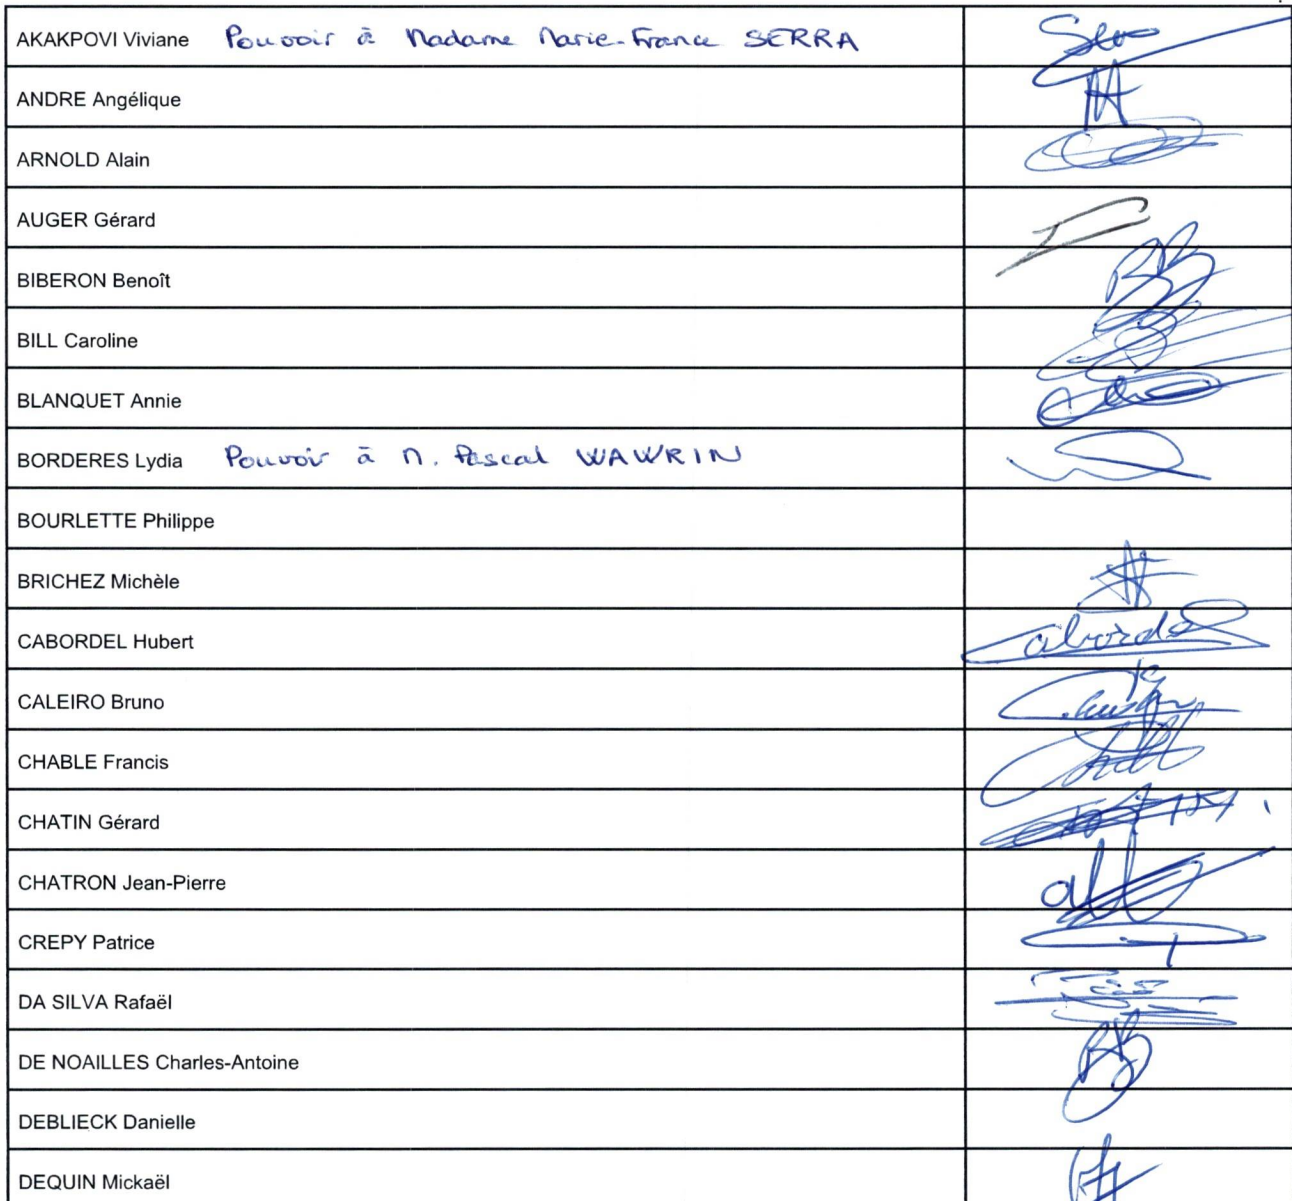 AKAKPOVI Viviane Pouvoir à Madame Marie-France SERRA
ANDRE Angélique
ARNOLD Alain
AUGER Gérard
BIBERON Benoît
BILL Caroline
BLANQUET Annie
BORDERES Lydia Pouvoir à M. Pascal WAWRIN
BOURLETTE Philippe
BRICHEZ Michèle
CABORDEL Hubert
CALEIRO Bruno
CHABLE Francis
CHATIN Gérard
CHATRON Jean-Pierre
CREPY Patrice
DA SILVA Rafaël
DE NOAILLES Charles-Antoine
DEBLIECK Danielle
DEQUIN Mickaël